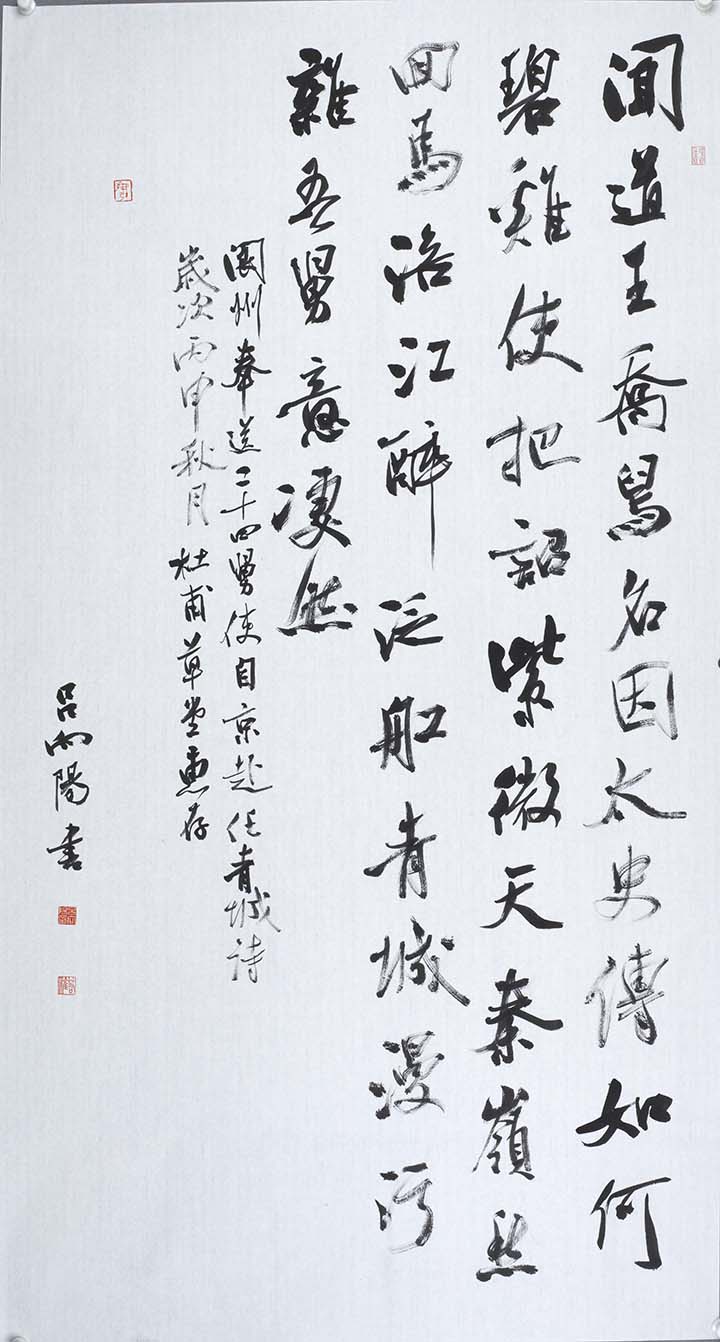 聞道王喬舄名因太史傳如何
碧雞使把詔紫微天秦嶺愁
回馬涪江醉泛船青城漫污
雜吾舅意凄然
閬州奉送二十四舅使自京赴任青城诗
歲次丙申秋月 杜甫草堂惠存
吕向陽書